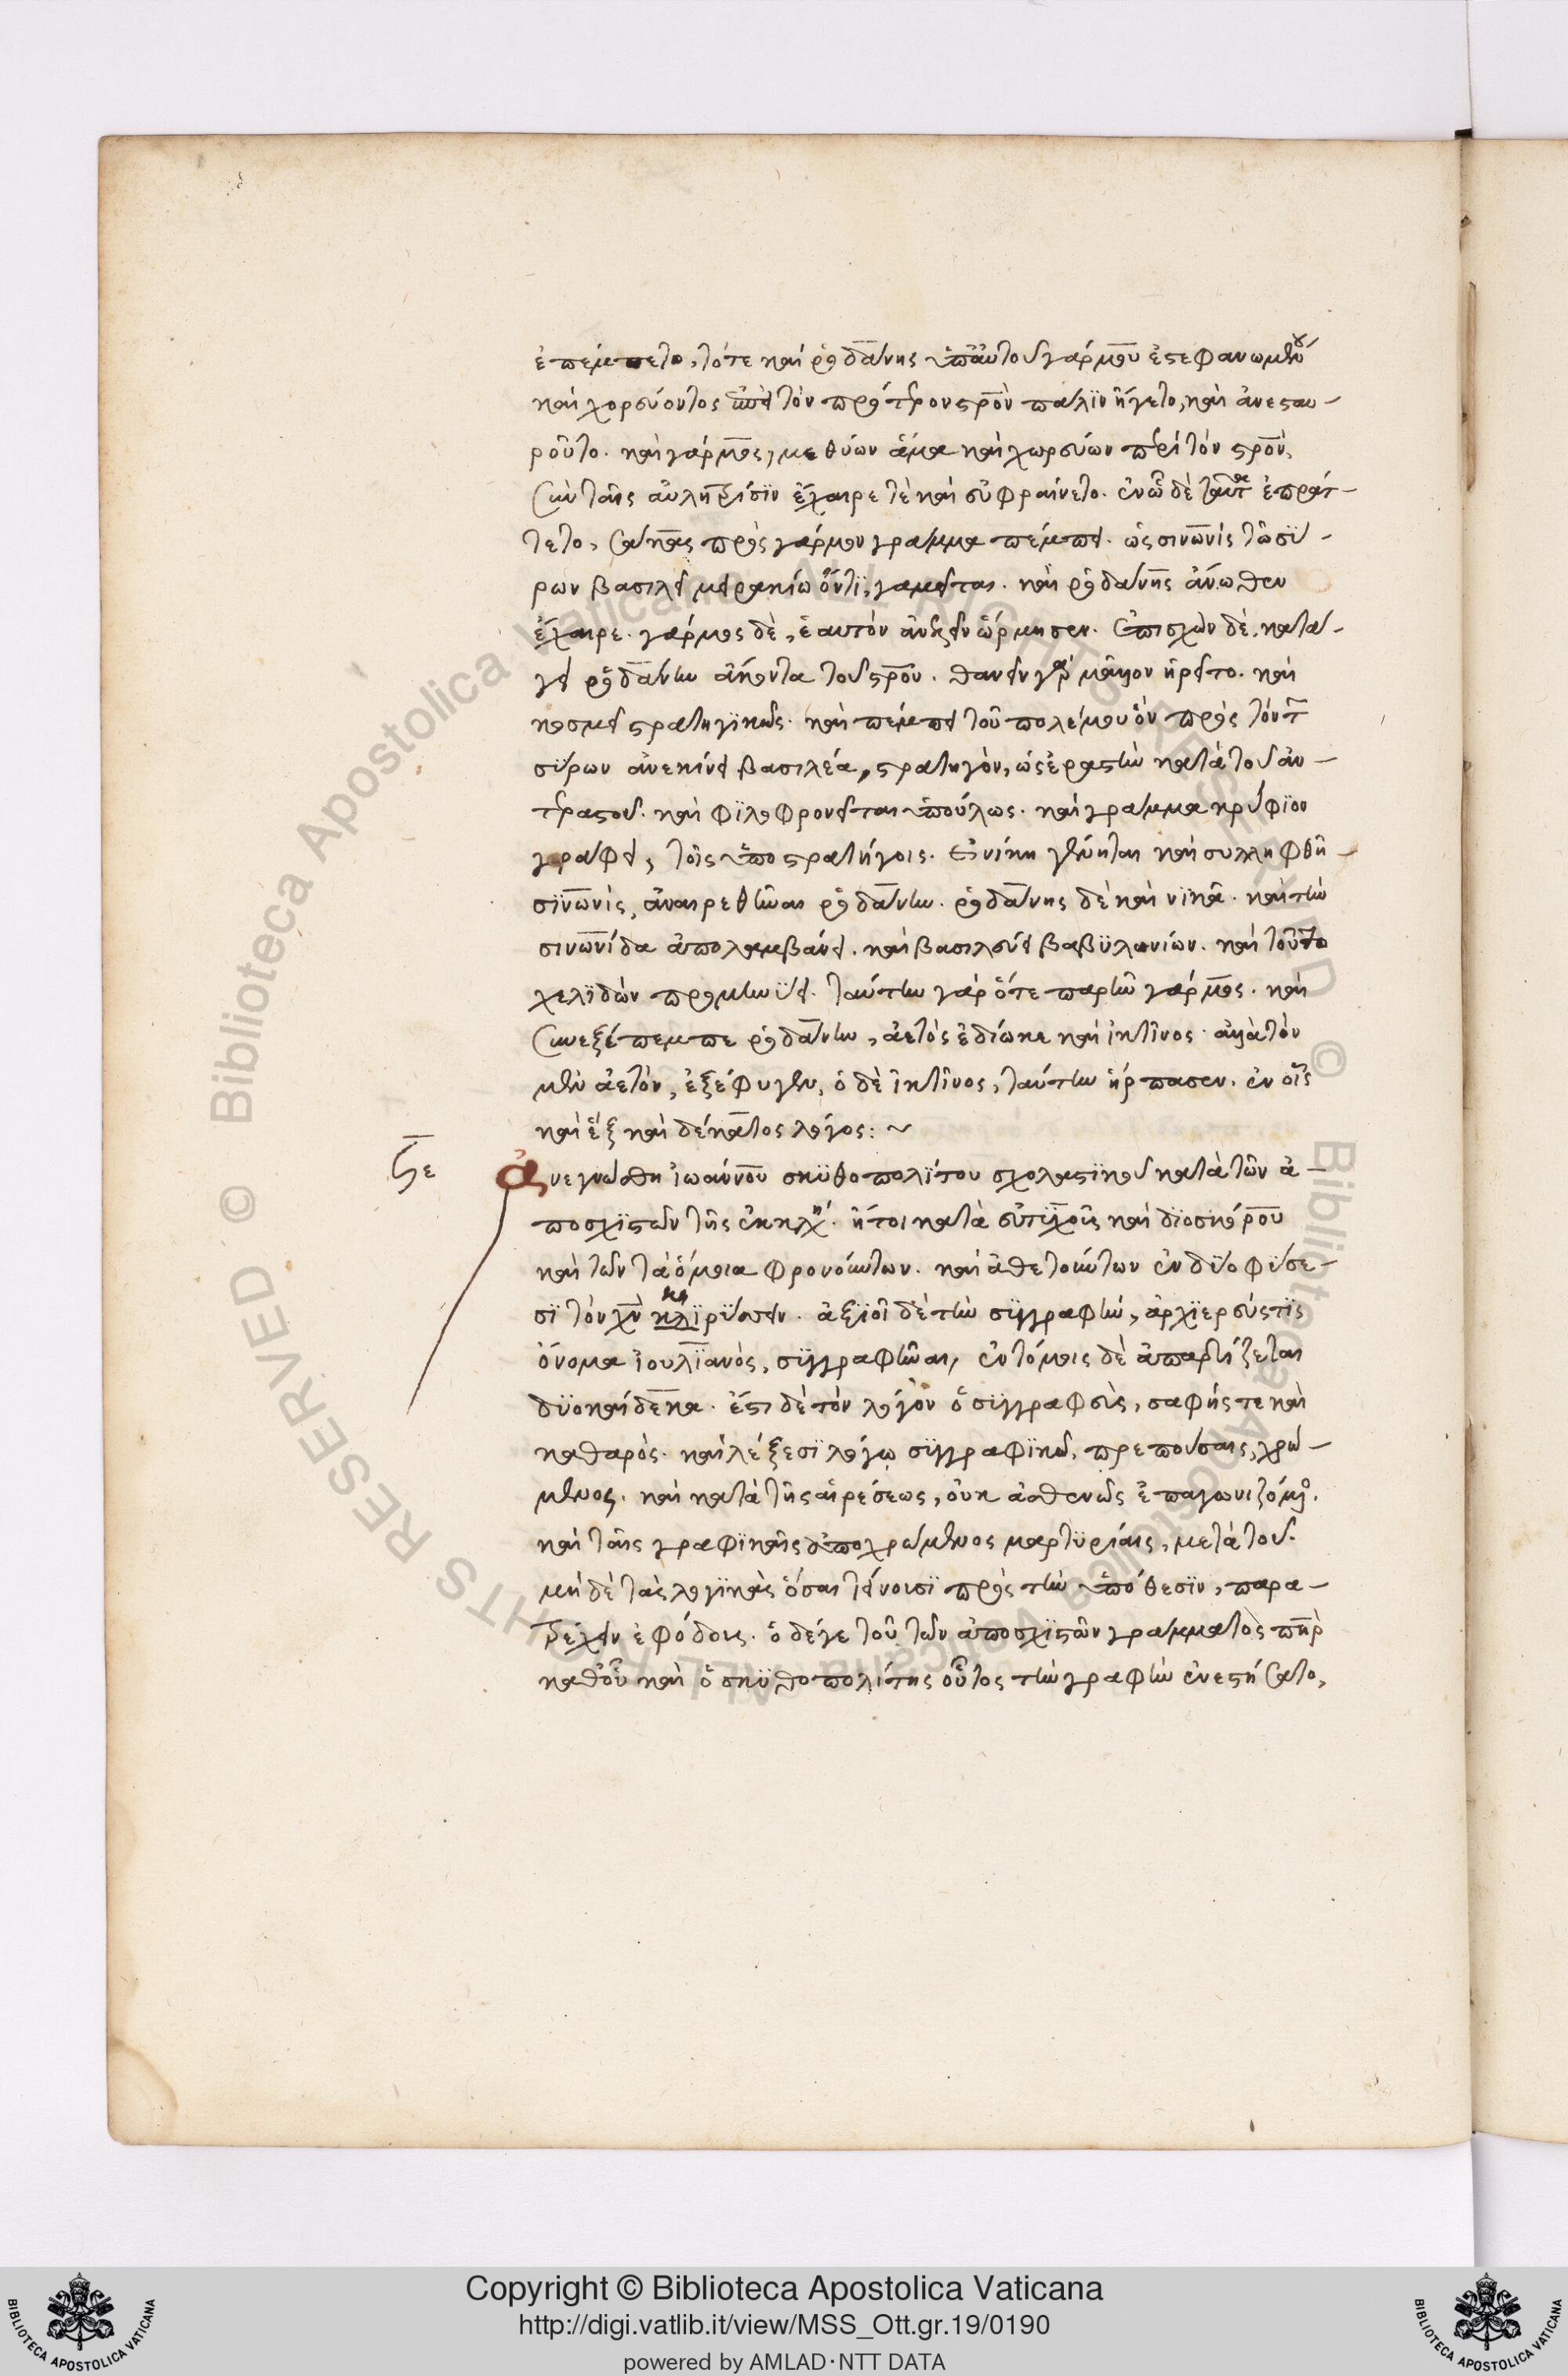 ἐπέμπετο, τότε καὶ ῥοδάνης ὑπ' αὐτοῦ γάρμου ἐστεφανωμένου
καὶ χορεύοντος ἐπὶ τὸν πρότερον σταυρὸν πάλϊν ἤγετο, καὶ ἀνεσταυ-
ροῦτο. καὶ γάρμος, μεθύων ἅμα καὶ χωρεύων περὶ τὸν σταυρὸν,
σὺν ταῖς αὐλητρίσϊν ἔχαιρε τὲ καὶ εὐφραίνετο. ἐν ὧ δὲ ταῦτα ἐπράτ-
τετο, σάκας πρὸς γάρμον γράμμα πέμπει. ὡς σινωνὶς τῶ σύ-
ρων βασιλεῖ μειρακίω ὄντϊ, γαμεῖται. καὶ ῥοδάνης ἄνωθεν
ἔχαιρε. γάρμος δὲ, ἑαυτὸν ἀνελεῖν ὥρμησεν. ἐπισχὼν δὲ, κατά-
γει ῥοδάνην ἄκοντα τοῦ σταυροῦ. θανεῖν γὰρ μᾶλλον ἡρεῖτο. καὶ
κοσμεῖ στρατηγϊκῶς. καὶ πέμπει τοῦ πολέμου ὃν πρὸς τόν τῶν
σύρων ἀνεκίνει βασιλέα, στρατηγόν, ὡς ἐραστὴν κατὰ τοῦ ἀν-
τεραστοῦ. καὶ φϊλοφρονεῖται ὑπούλως. καὶ γράμμα κρύφϊον
γράφει, τοῖς ὑποστρατήγοις. εἰ νίκη γένηται καὶ συλληφθῆ
σϊνωνὶς, ἀναιρεθῆναι ῥοδάνην. ῥοδάνης δὲ καὶ νϊκᾶ. καὶ τὴν
σινωνίδα ἀπολαμβάνει. καὶ βασιλεύει βαβϋλωνίων. καὶ τοῦτο
χελϊδὼν προμηνύει. ταύτην γὰρ ὅτε παρῆν γάρμος. καὶ
συνεξέπεμπε ῥοδάνην, ἀετὸς ἐδίωκε καὶ ἰκτῖνος. ἀλλὰ τὸν
μὲν ἀετὸν, ἐξέφυγεν, ὁ δὲ ἰκτῖνος, ταύτην ἥρπασεν. ἐν οἷς
καὶ ἓξ καὶ δέκατος λόγος: ~
ϟε Ἀνεγνώσθη ἰωάννου σκϋθοπολίτου σχολαστϊκοῦ κατὰ τῶν ἀ-
ποσχϊστῶν τῆς ἐκκλη. ἤτοι κατὰ εὐτϋχοῦς καὶ δϊοσκόρου
καὶ τῶν τὰ ὅμοια φρονούντων. καὶ ἀθετούντων ἐν δύο φύσε-
σϊ τὸν χν κηρύττειν. ἀξϊοῖ δὲ τὴν συγγραφὴν, ἀρχϊερεύς τϊς
ὄνομα ἰουλϊανὸς, συγγραφῆναι, ἐν τόμοις δὲ ἀπαρτίζεται
δϋοκαίδεκα. ἔστι δὲ τὸν λόγον ὁ συγγραφεὺς, σαφής τε καὶ
καθαρὸς. καὶ λέξεσϊ λόγω συγγραφϊκῶ, πρεπούσαις, χρώ-
μενος. καὶ κατὰ τῆς αἱρέσεως, οὐκ ἀσθενῶς ἐπαγωνιζόμενος.
καὶ ταῖς γραφϊκαῖς ἀποχρώμενος μαρτϋρίαις, μετὰ τοῦ
μὴ δὲ τὰς λογϊκὰς ὅσαι τείνουσϊ πρὸς τὴν ὑπόθεσϊν, παρα-
τρέχειν ἐφόδους. ὁ δέ γε τοῦ τῶν ἀποσχϊστῶν γράμματος πατὴρ
καθ' οὗ καὶ ὁ σκϋθοπολίτης οὗτος τὴν γραφὴν ἐνεστήσατο,
Biblioteca Apostolica Vaticana ALL RIGHTS RESERVED © Biblioteca Apostolica Vaticana ALL RIGHTS RESERVED ©
Copyright © Biblioteca Apostolica Vaticana
http://digi.vatlib.it/view/MSS_Ott.gr.19/0190
powered by AMLAD·NTT DATA
BIBLIOTECA APOSTOLICA VATICANA
BIBLIOTECA APOSTOLICA VATICANA